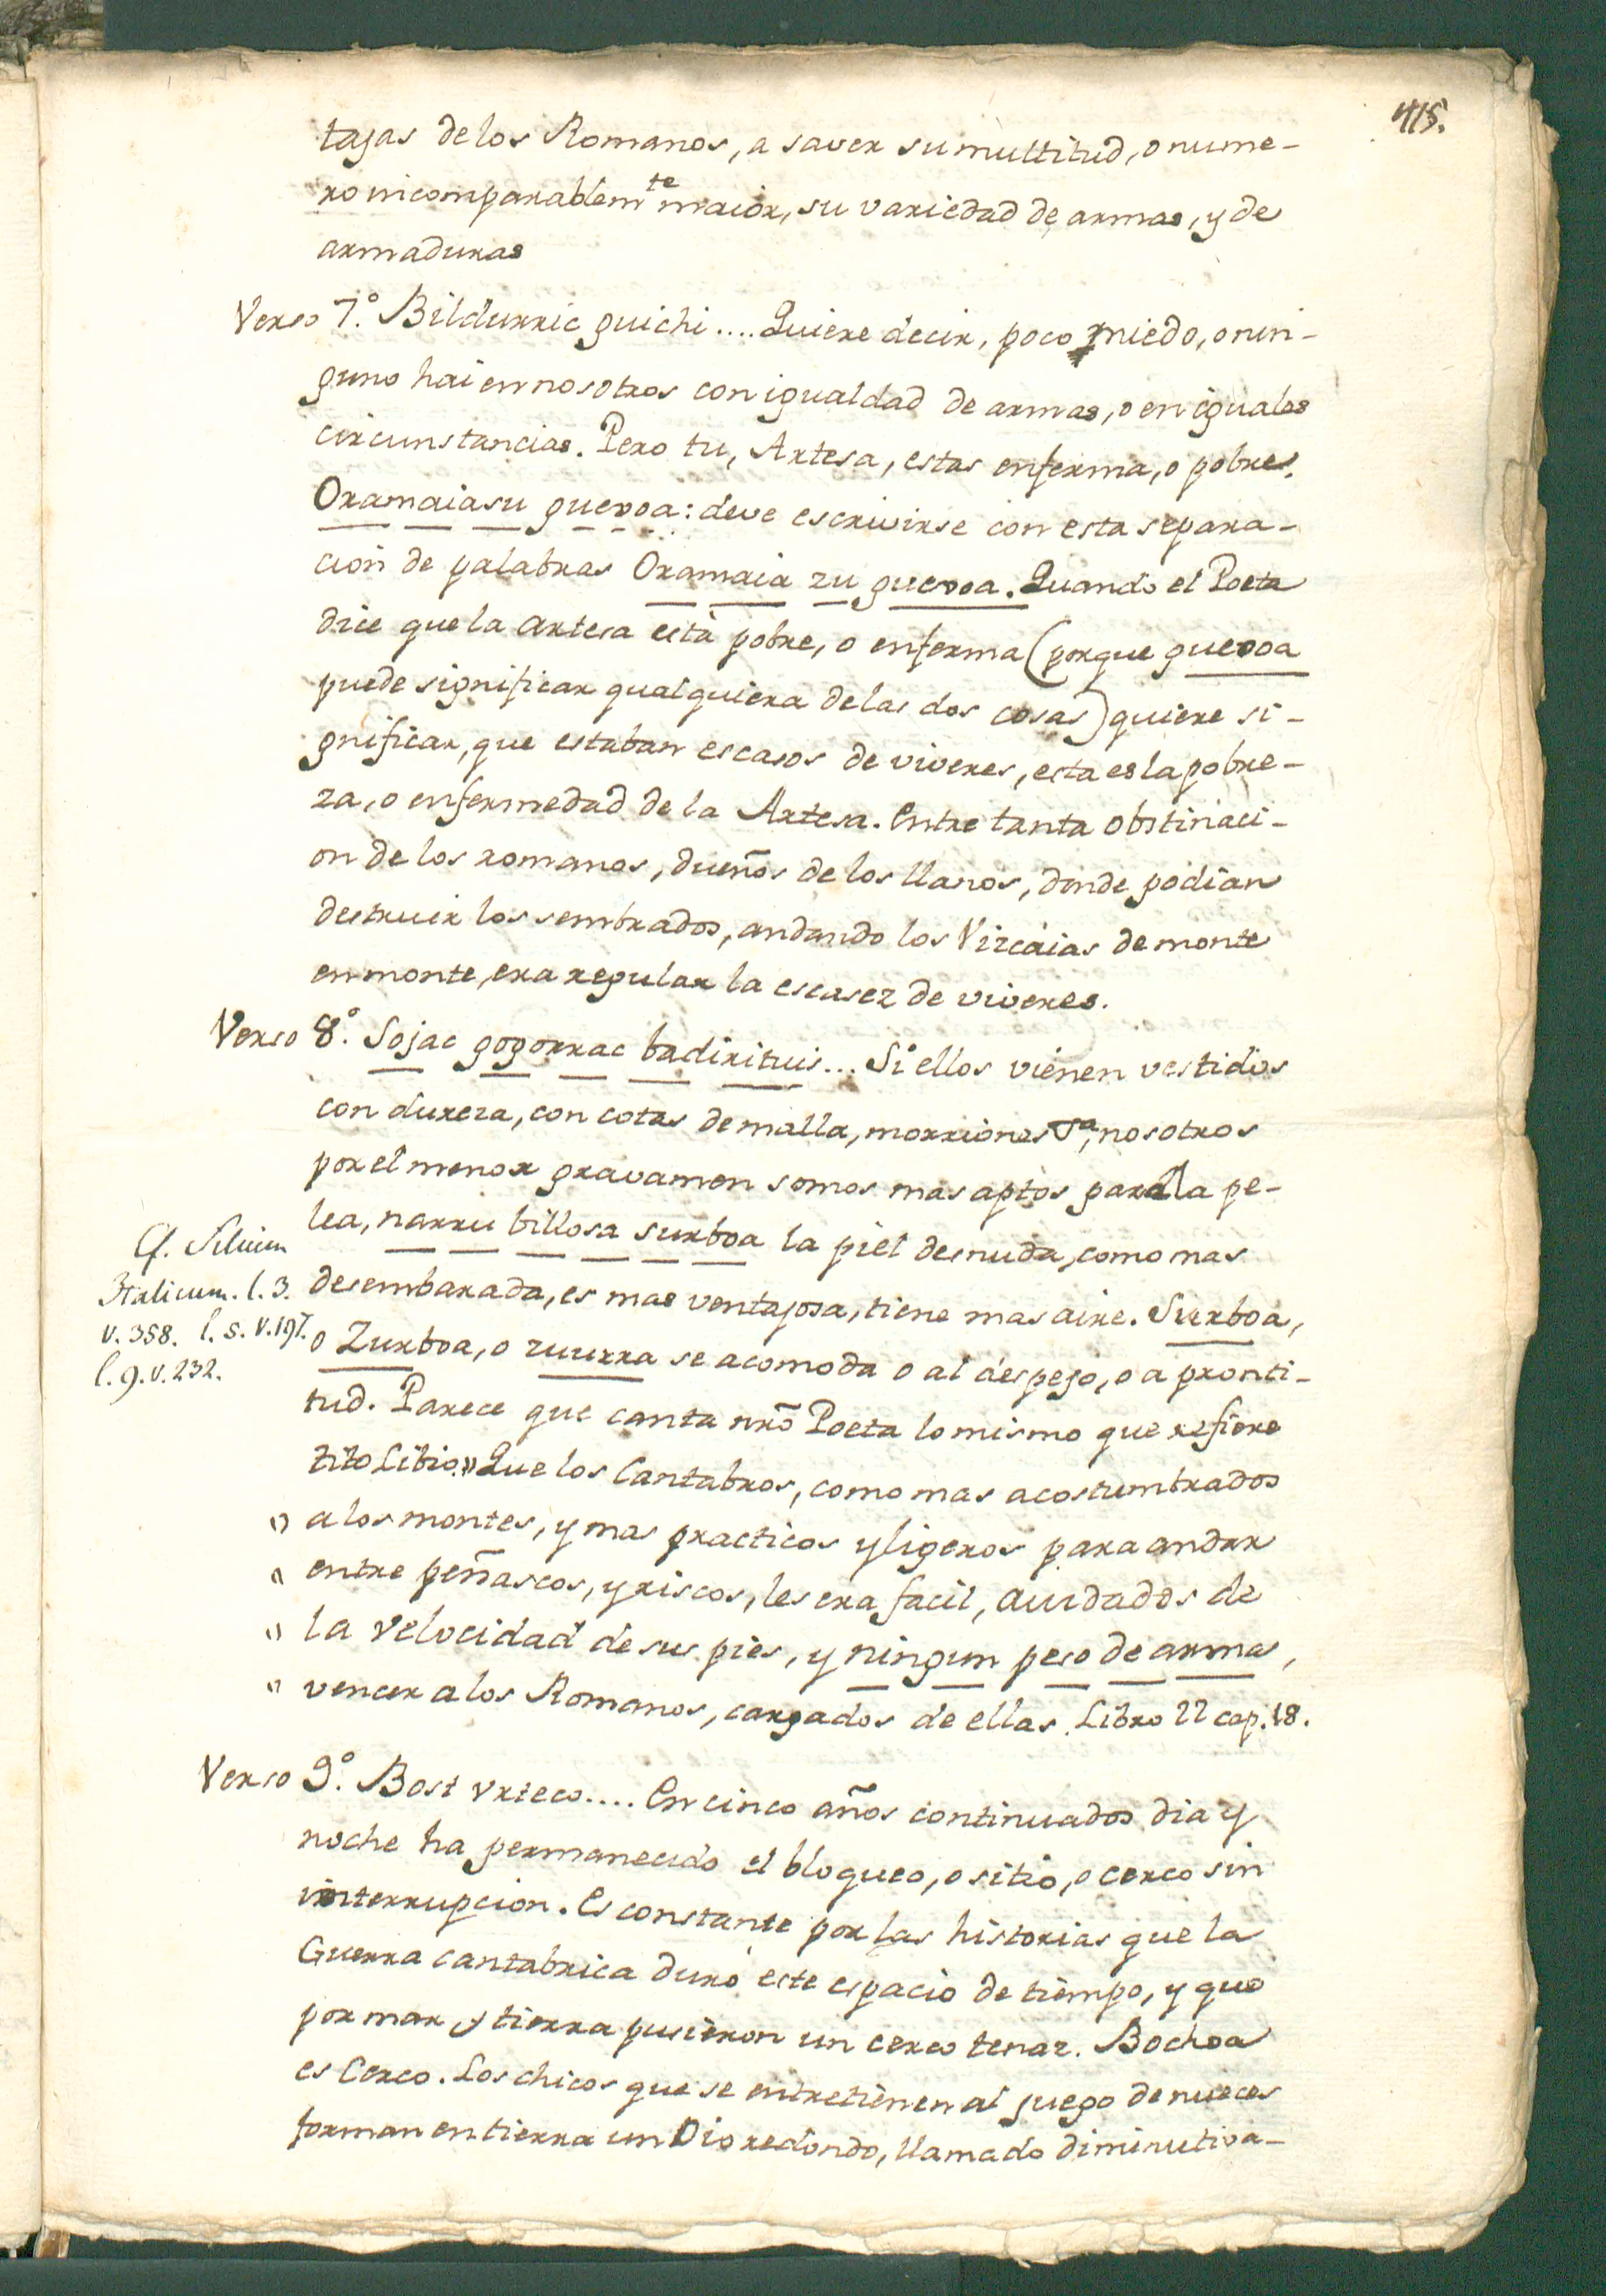 415.
tajas de los Romanos, a saver su multitud, o nume-
ro incomparablemte maior, su variedad de armas, y de
armaduras
Verso 7.º Bildurric guichi .... Quiere decir, poco miedo, o nin-
guno hai en nosotros con igualdad de armas, o en iguales
circunstancias. Pero tu, Artesa, estas enferma, o pobre.
Oramaiasu guexoa: deve escrivirse con esta separa-
cion de palabras Oramaia zu guexoa. Quando el Poeta
dice que la artesa està pobre, o enferma (porque guexoa
puede significar qualquiera de las dos cosas) quiere si-
gnificar, que estaban escasos de viveres, esta es la pobre-
za, o enfermedad de la Artesa. Entre tanta obstinaci-
on de los romanos, dueños de los llanos, donde podian
destruir los sembrados, andando los Vizcaias de monte
en monte, era regular la escasez de viveres.
Verso 8.º Sojac gogorrac badirituis... Si ellos vienen vestidos
con dureza, con cotas de malla, morriones &a, nosotros
por el menor gravamen somos mas aptos para la pe-
lea, narru billosa surboa la piel desnuda, como mas
desembarada, es mas ventajosa, tiene mas aire. Surboa,
o Zurboa, o zuurra se acomoda o al despejo, o a pronti-
tud. Parece que canta nrõ Poeta lo mismo que refiere
tito Libio „ Que los Cantabros, como mas acostumbrados
„ a los montes, y mas practicos y ligeros para andar
„ entre peñascos, y riscos, les era facil, aiudados de
„ la velocidad de sus pies, y ningun peso de armas,
„ vencer a los Romanos, cargados de ellas. Libro 22 cap. 18.
Cf. Silium
Italicum. l. 3.
v. 358. l. 5. v. 197.
l. 9. v. 232.
Verso 9.º Bost urteco.... En cinco años continuados dia y
noche ha permanecido el bloqueo, o sitio, o cerco sin
interrupcion. Es constante por las historias que la
Guerra cantabrica durò este espacio de tiempo, y que
por mar y tierra pusieron un cerco tenaz. Bochoa
es Cerco. Los chicos que se entretienen al juego de nueces
forman en tierra un O io redondo, llamado diminutiva-